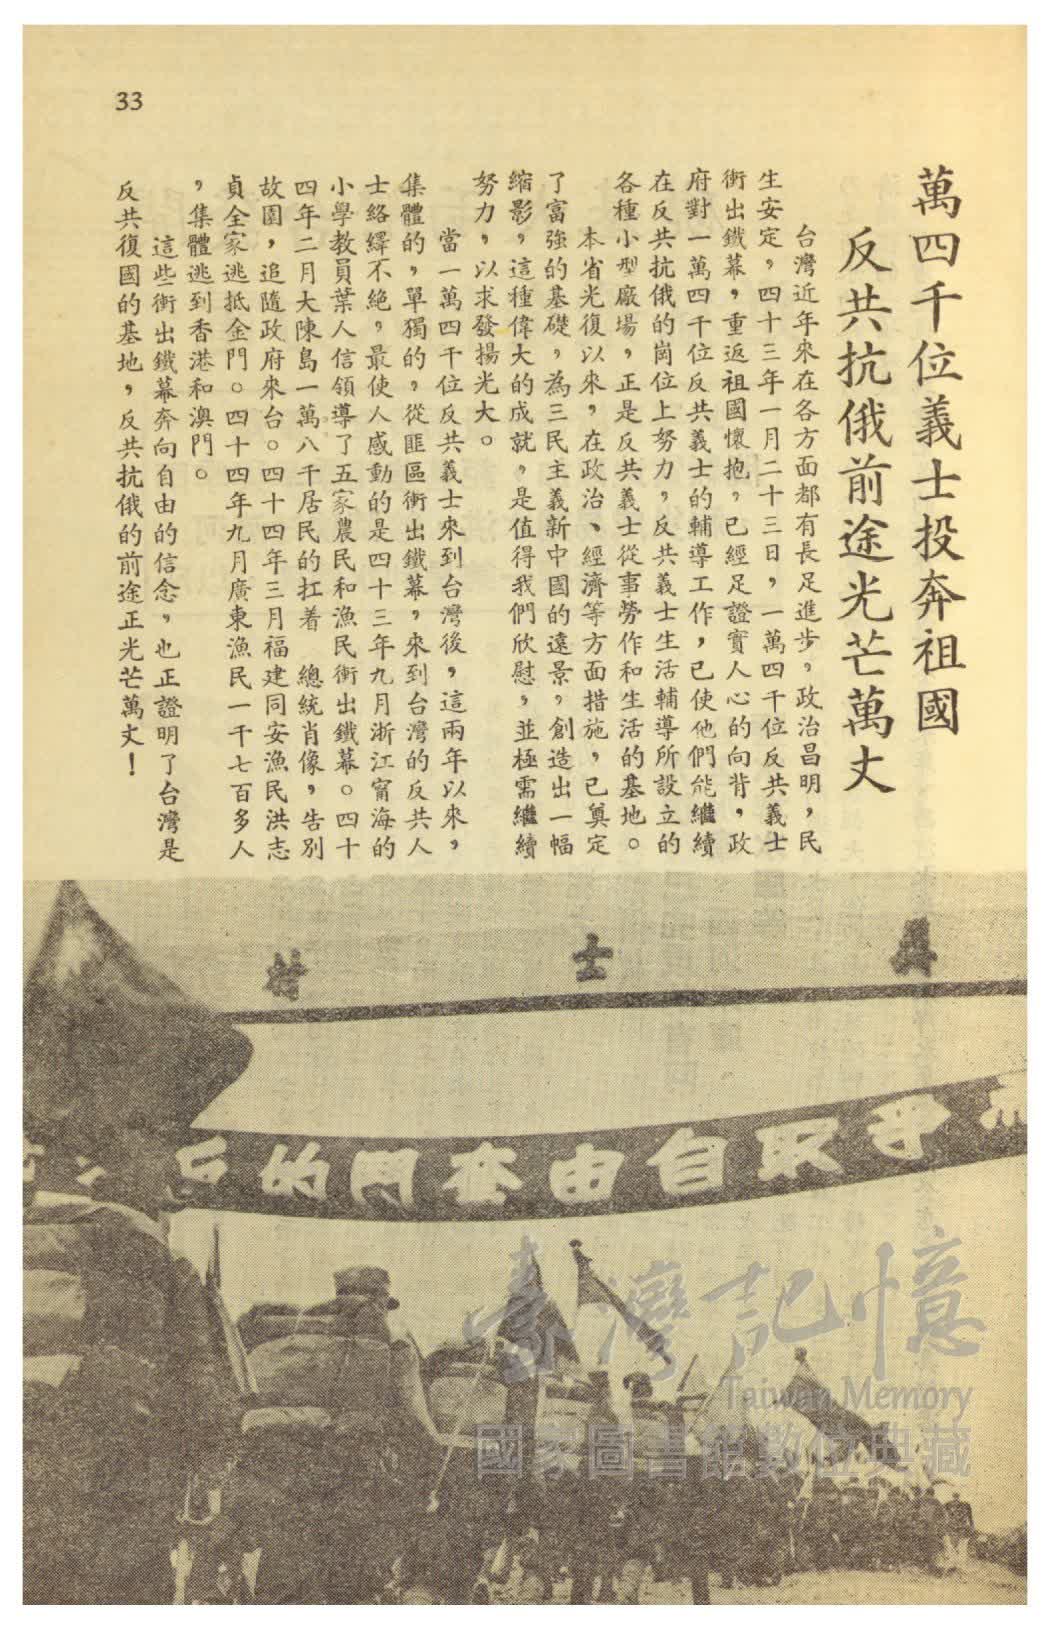 33
萬四千位義士投奔祖國
反共抗俄前途光芒萬丈
台灣近年來在各方面都有長足進步，政治昌明，民
生安定，四十三年一月二十三日，一萬四千位反共義士
衝出鐵幕，重返祖國懷抱，已經足證實人心的向背，政
府對一萬四千位反共義士的輔導工作，已使他們能繼續
在反共抗俄的崗位上努力，反共義士生活輔導所設立的
各種小型廠場，正是反共義士從事勞作和生活的基地。
本省光復以來，在政治、經濟等方面措施，已奠定
了富強的基礎，為三民主義新中國的遠景，創造出一幅
縮影，這種偉大的成就，是值得我們欣慰，並極需繼續
努力，以求發揚光大。
當一萬四千位反共義士來到台灣後，這兩年以來，
集體的，單獨的，從匪區衝出鐵幕，來到台灣的反共人
士絡繹不絕，最使人感動的是四十三年九月浙江甯海的
小學教員葉人信領導了五家農民和漁民衝出鐵幕。四十
四年二月大陳島一萬八千居民的扛着　總統肖像，告別
故園，追隨政府來台。四十四年三月福建同安漁民洪志
貞全家逃抵金門。四十四年九月廣東漁民一千七百多人
，集體逃到香港和澳門。
這些衝出鐵幕奔向自由的信念，也正證明了台灣是
反共復國的基地，反共抗俄的前途正光芒萬丈！
士
爭取自由奮鬥的反
臺灣記憶
Taiwan Memory
國家圖書館數位典藏